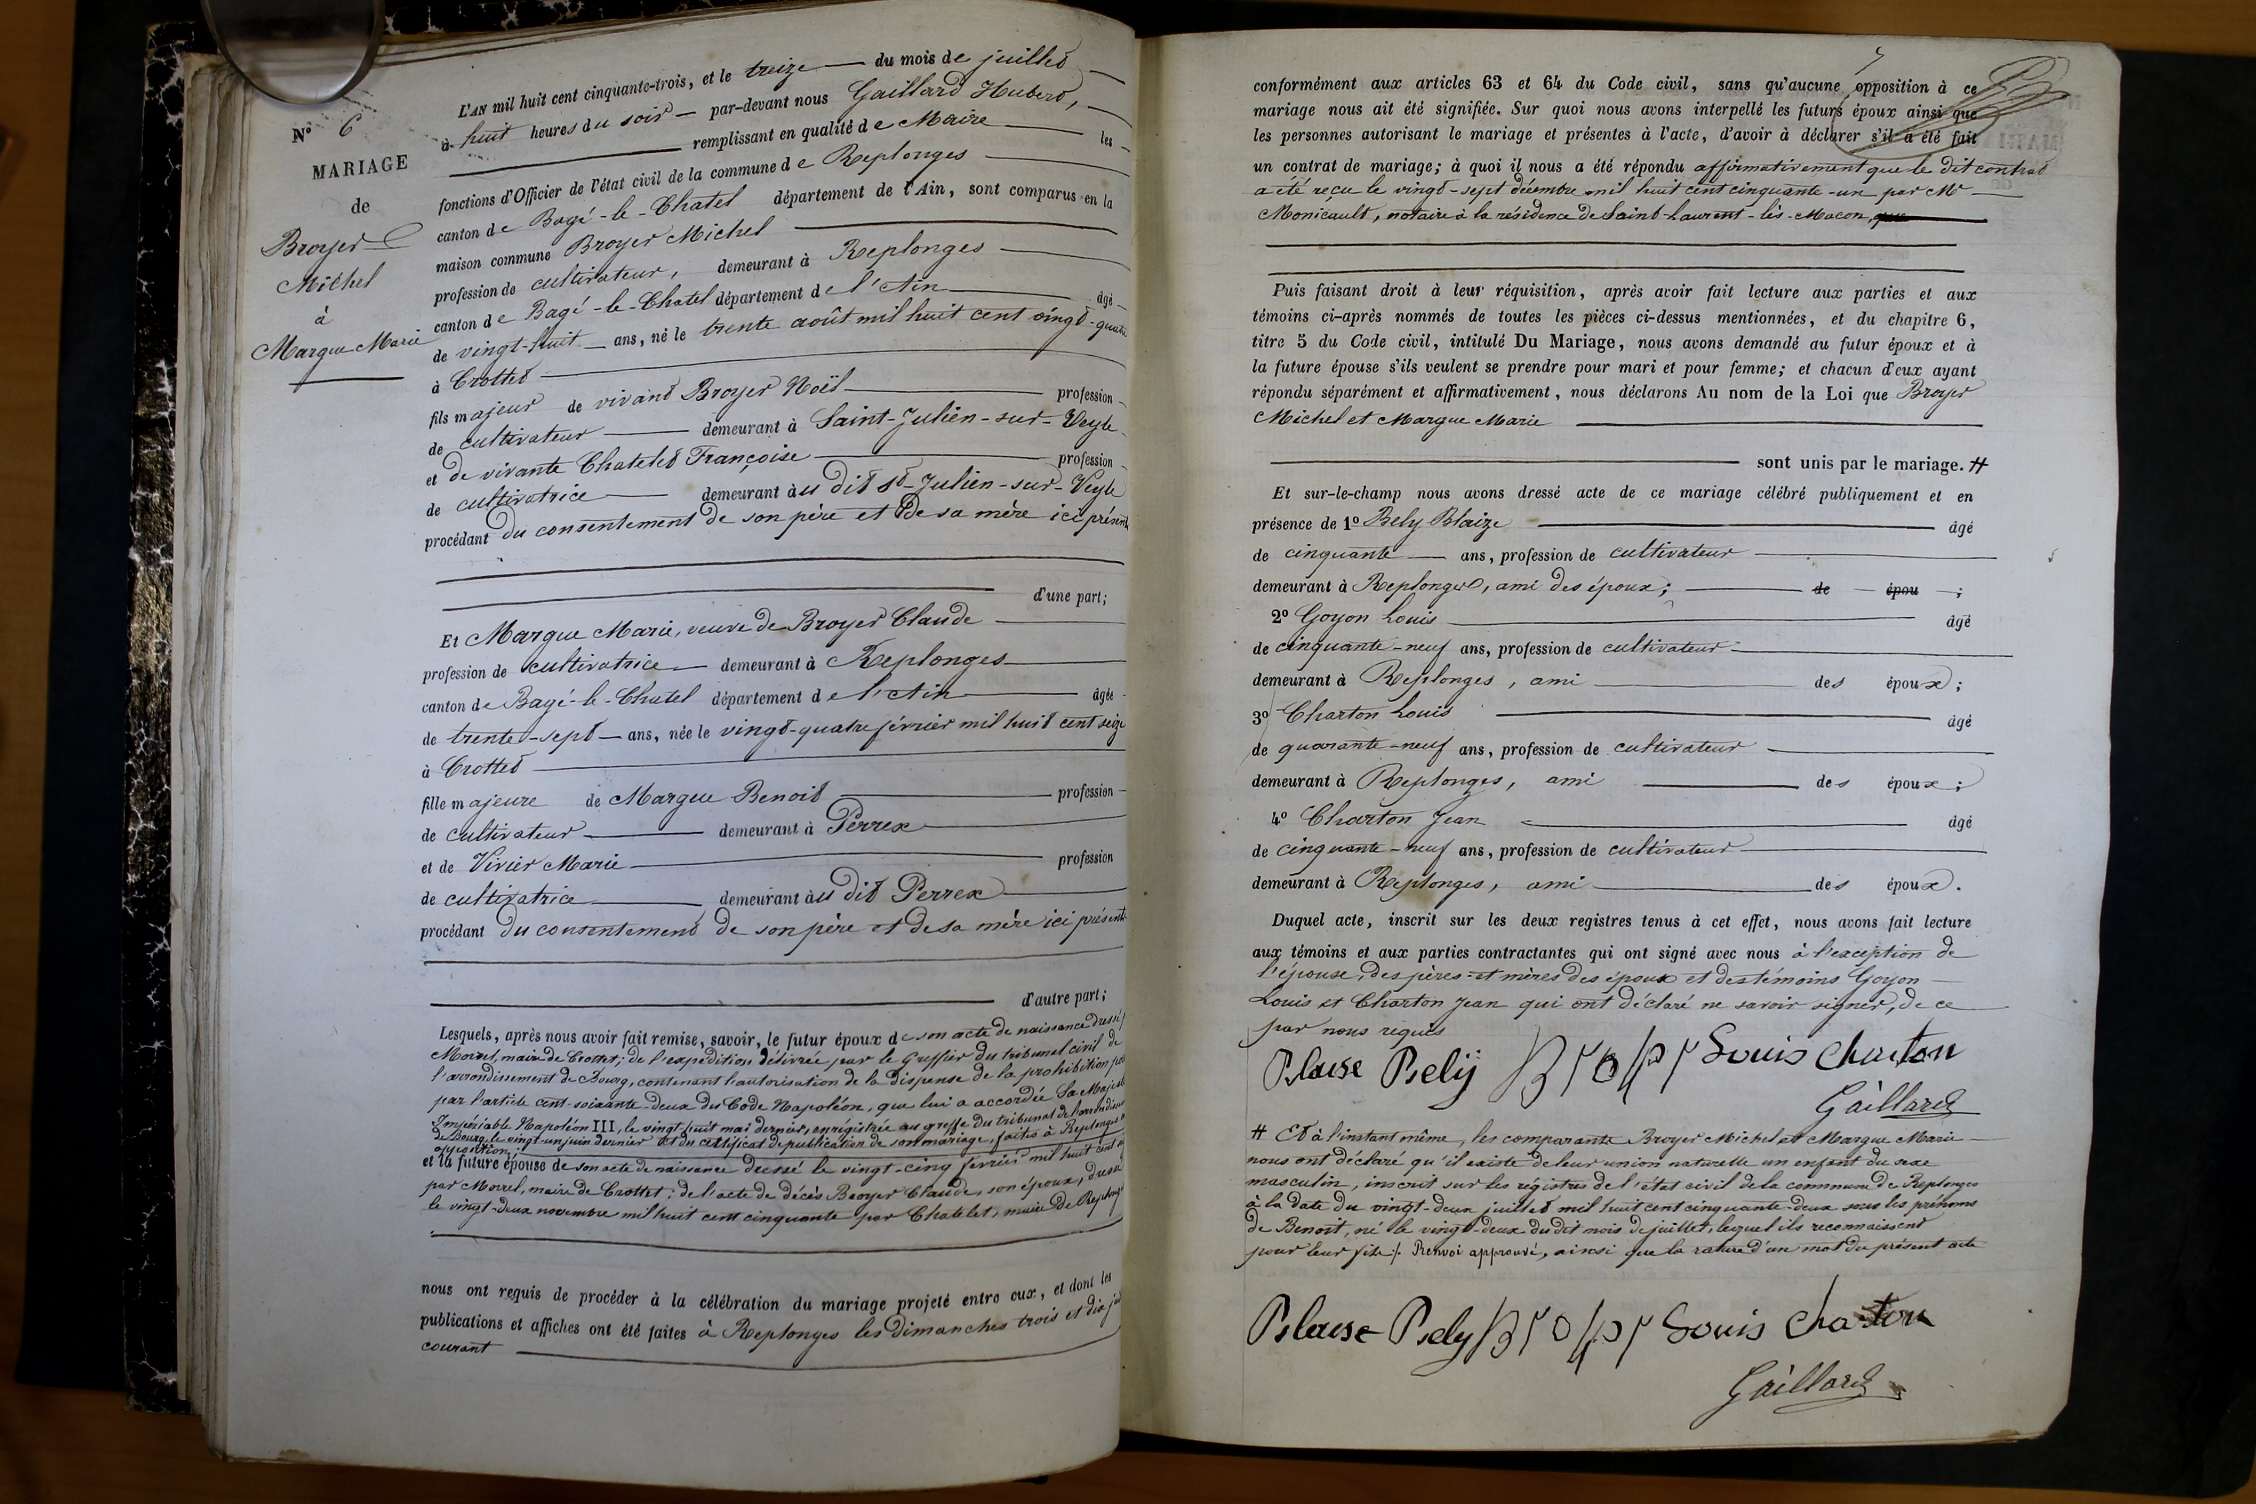 N° 6
MARIAGE
de
Broyer
Michel
à
Margue Marie
L'AN mil huit cent cinquante-trois, et le treize du mois de juillet
à huit heures du soir par-devant nous Gaillard Hubert,
remplissant en qualité de Maire les
fonctions d'Officier de l'état civil de la commune de Replonges
canton de Bagé-le-Chatel département de l'Ain, sont comparus en la
maison commune Broyer Michel
profession de cultivateur, demeurant à Replonges
canton de Bagé-le-Chatel département de l'Ain âgé
de vingt-huit ans, né le trente août mil huit cent vingt-quatre
à Crottet
fils majeur de vivant Broyer Noël profession
de cultivateur demeurant à Saint-Julien-sur-Veyle
et de vivante Chatelet Françoise profession
de cultivatrice demeurant au dit St-Julien-sur-Veyle
procédant du consentement de son père et de sa mère ici présents
d'une part;
Et Margue Marie, veuve de Broyer Claude
profession de cultivatrice demeurant à Replonges
canton de Bagé-le-Chatel département de l'Ain âgée
de trente-sept ans, née le vingt-quatre février mil huit cent seize
à Crottet
fille majeure de Margue Benoit profession
de cultivateur demeurant à Perrex
et de Vivier Marie profession
de cultivatrice demeurant au dit Perrex
procédant du consentement de son père et de sa mère ici présents
d'autre part;
Lesquels, après nous avoir fait remise, savoir, le futur époux de son acte de naissance dressé
Morel, maire de Crottet; de l'expédition délivrée par le Greffier du tribunal civil de
l'arrondissement de Bourg, contenant l'autorisation de la dispense de la prohibition
par l'article cent-soixante-deux du Code Napoléon, que lui a accordée Sa Majesté
Impériale Napoléon III, le vingt huit mai dernier, enregistrée au greffe du tribunal de l'arrondissement
de Bourg, le vingt-un juin dernier et du certificat de publication de son mariage, faites à Replonges
opposition;
et la future épouse de son acte de naissance dressé le vingt-cinq février mil huit cent
par Morel, maire de Crottet; de l'acte de décès Broyer Claude, son époux, dressé
le vingt-deux novembre mil huit cent cinquante par Chatelet, maire de Replonges
nous ont requis de procéder à la célébration du mariage projeté entre eux, et dont les
publications et affiches ont été faites à Replonges les dimanches trois et dix
courant
7
conformément aux articles 63 et 64 du Code civil, sans qu'aucune opposition à ce
mariage nous ait été signifiée. Sur quoi nous avons interpellé les futurs époux ainsi que
les personnes autorisant le mariage et présentes à l'acte, d'avoir à déclarer s'il a été fait
un contrat de mariage; à quoi il nous a été répondu affirmativement que le dit contrat
a été reçu le vingt-sept décembre mil huit cent cinquante-un par Mr
Monicault, notaire à la résidence de Saint-Laurent-lès-Macon, que
Puis faisant droit à leur réquisition, après avoir fait lecture aux parties et aux
témoins ci-après nommés de toutes les pièces ci-dessus mentionnées, et du chapitre 6,
titre 5 du Code civil, intitulé Du Mariage, nous avons demandé au futur époux et à
la future épouse s'ils veulent se prendre pour mari et pour femme; et chacun d'eux ayant
répondu séparément et affirmativement, nous déclarons Au nom de la Loi que Broyer
Michel et Margue Marie
sont unis par le mariage. #
Et sur-le-champ nous avons dressé acte de ce mariage célébré publiquement et en
présence de 1° Bely Blaize âgé
de cinquante ans, profession de cultivateur
demeurant à Replonges, ami des époux; de épou ;
2° Goyon Louis âgé
de cinquante-neuf ans, profession de cultivateur
demeurant à Replonges, ami des époux;
3° Charton Louis âgé
de quarante-neuf ans, profession de cultivateur
demeurant à Replonges, ami des époux;
4° Charton Jean âgé
de cinquante-neuf ans, profession de cultivateur
demeurant à Replonges, ami des époux.
Duquel acte, inscrit sur les deux registres tenus à cet effet, nous avons fait lecture
aux témoins et aux parties contractantes qui ont signé avec nous à l'exception de
l'épouse, des pères et mères des époux et des témoins Goyon
Louis et Charton Jean qui ont déclaré ne savoir signer, de ce
par nous requis
Blaise Bely Louis Charton
Gaillard
# Et à l'instant même, les comparants Broyer Michel et Margue Marie
nous ont déclaré qu'il existe de leur union naturelle un enfant du sexe
masculin, inscrit sur les régistres de l'état civil de la commune de Replonges
à la date du vingt-deux juillet mil huit cent cinquante-deux sous les prénoms
de Benoit, né le vingt-deux du dit mois de juillet, lequel ils reconnaissent
pour leur fils /. Renvoi approuvé, ainsi que la rature d'un mot du présent acte
Blaise Bely Louis Charton
Gaillard